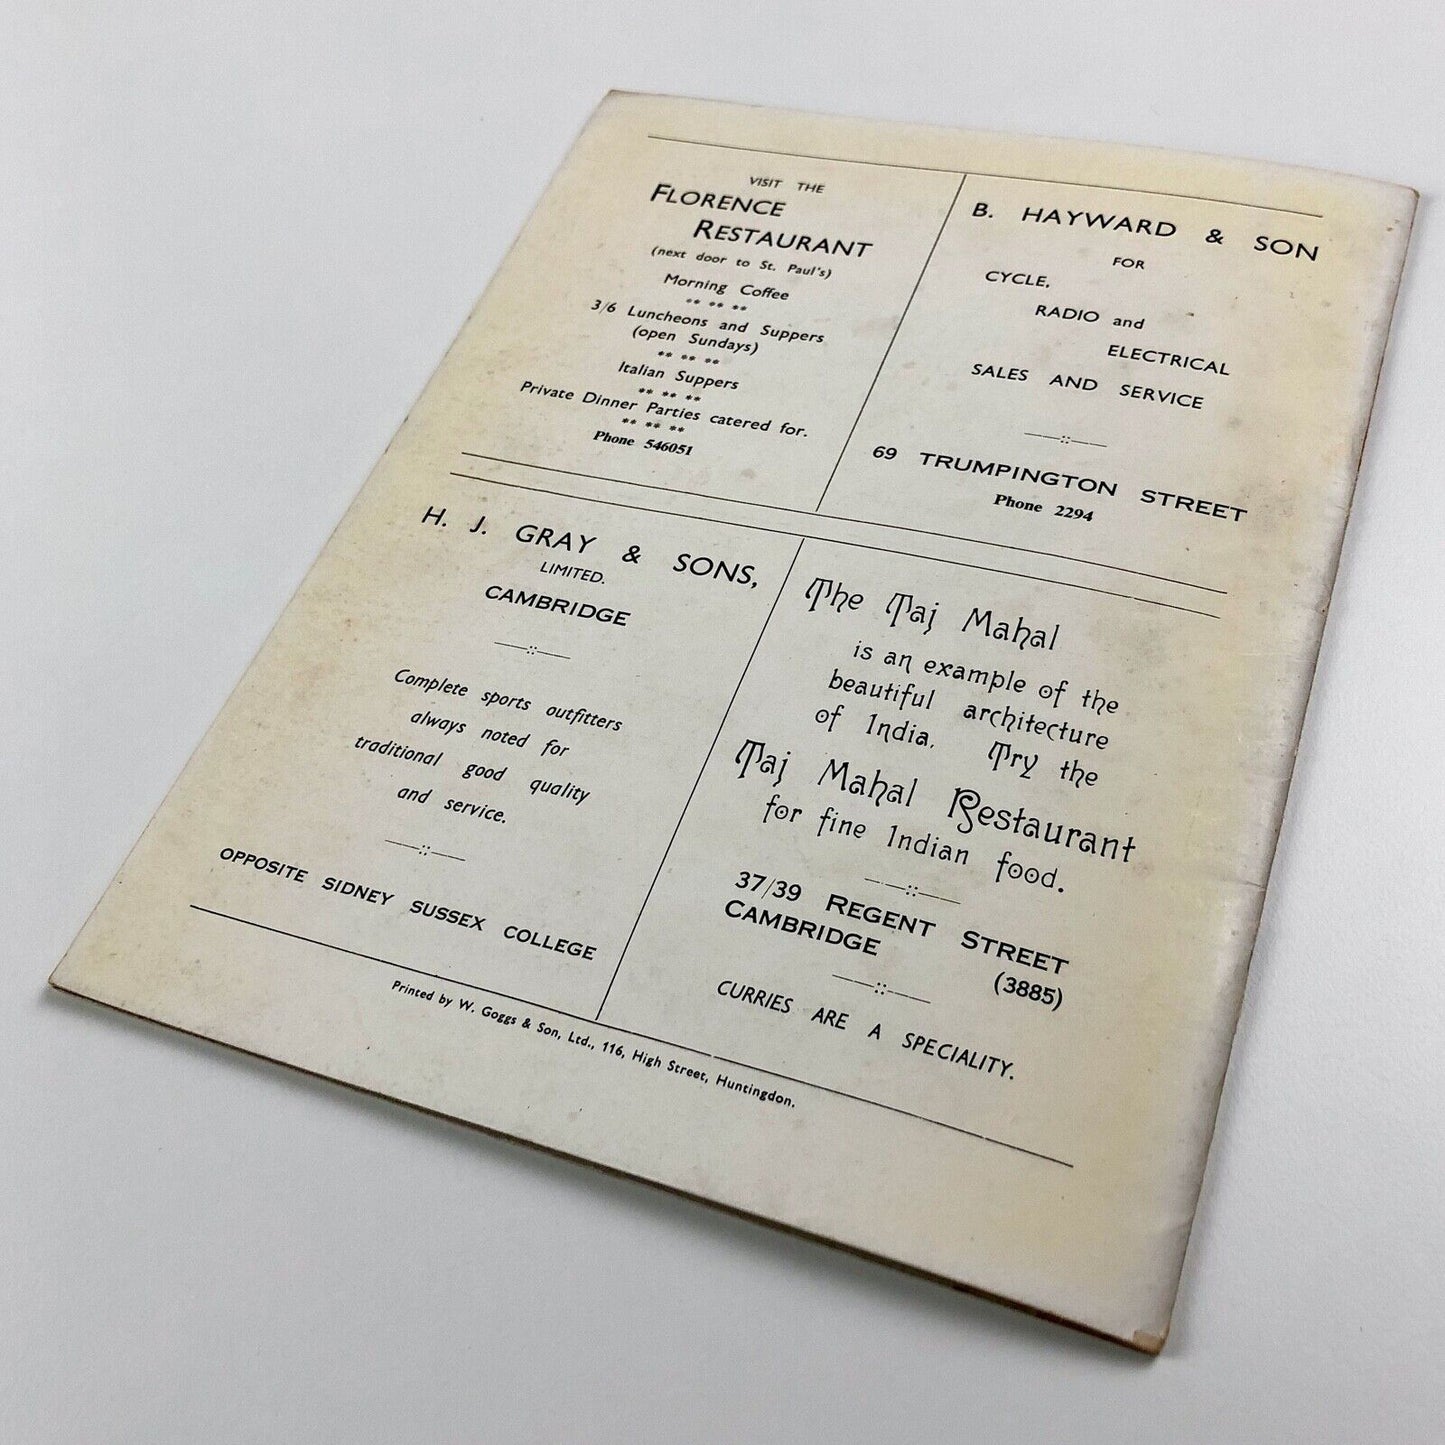 VISIT THE
FLORENCE
RESTAURANT
(next door to St. Paul's)
Morning Coffee
** ** **
3/6 Luncheons and Suppers
(open Sundays)
** ** **
Italian Suppers
** ** **
Private Dinner Parties catered for.
** ** **
Phone 546051
B. HAYWARD & SON
FOR
CYCLE,
RADIO and
ELECTRICAL
SALES AND SERVICE
69 TRUMPINGTON STREET
Phone 2294
H. J. GRAY & SONS,
LIMITED.
CAMBRIDGE
Complete sports outfitters
always noted for
traditional good quality
and service.
OPPOSITE SIDNEY SUSSEX COLLEGE
The Taj Mahal
is an example of the
beautiful architecture
of India. Try the
Taj Mahal Restaurant
for fine Indian food.
37/39 REGENT STREET
CAMBRIDGE
(3885)
CURRIES ARE A SPECIALITY.
Printed by W. Goggs & Son, Ltd., 116, High Street, Huntingdon.